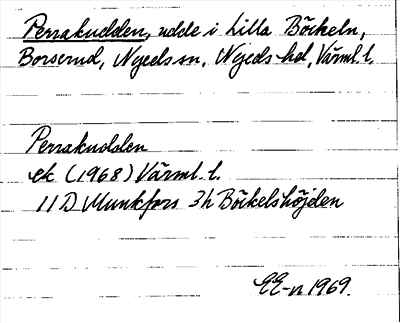 Perrakudden, udde i Lilla Böckeln,
Borserud, Nyeds sn, Nyeds hd, Värml. l.
Perrakudden
ek (1968) Värml. l.
11 D Munkfors 3h Böckelshöjden
EE-n 1969.